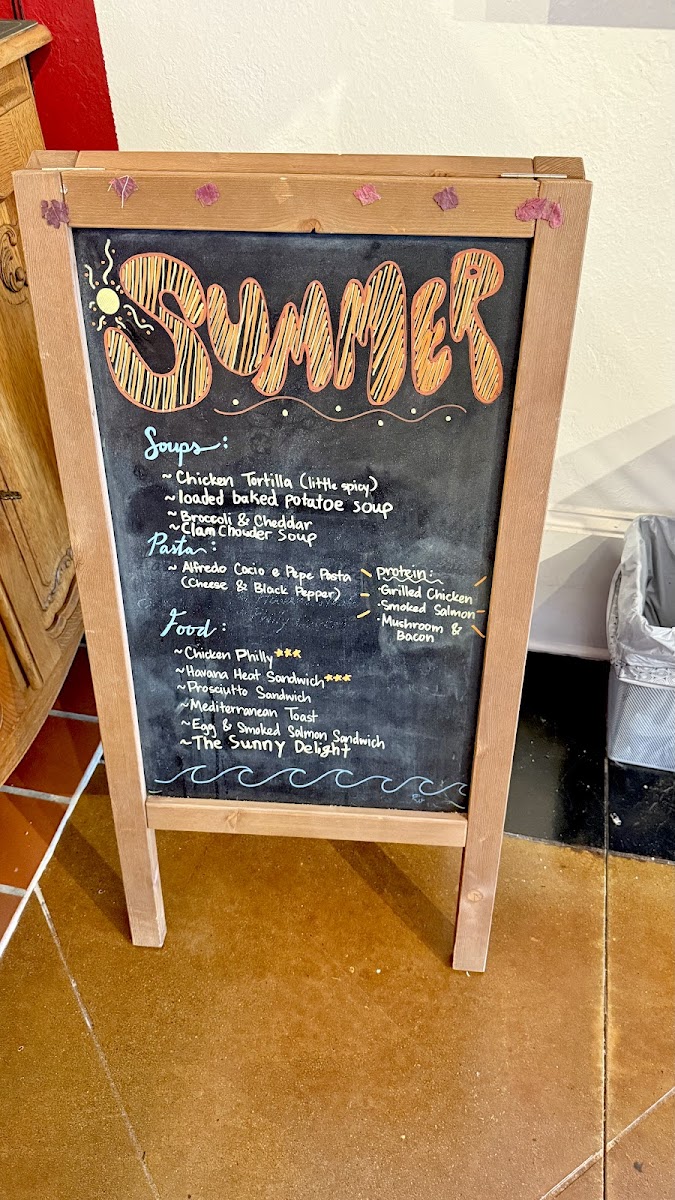 SUMMER
Soups:
~ Chicken Tortilla (little spicy)
~ loaded baked potatoe soup
~ Broccoli & Cheddar
~ Clam Chowder Soup
Pasta:
~ Alfredo Cacio e Pepe Pasta
(Cheese & Black Pepper)
protein:
· Grilled Chicken
· Smoked Salmon
· Mushroom &
Bacon
Food:
~ Chicken Philly
~ Havana Heat Sandwich
~ Prosciutto Sandwich
~ Mediterranean Toast
~ Egg & Smoked Salmon Sandwich
~ The Sunny Delight